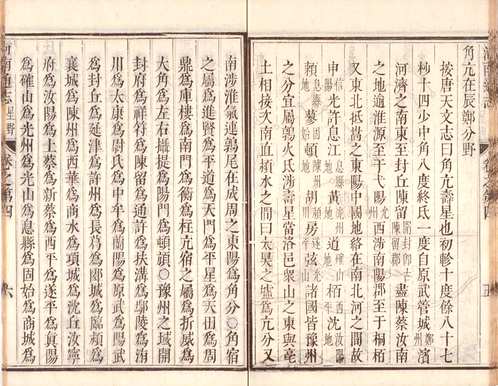 角亢在辰鄭分野
按唐天文志曰角亢壽星也初軫十度餘八十七
秒十四少中角八度終氐一度自原武管城鄭州濱
河濟之南東至封丘陳留盡陳蔡汝南
之地逾淮源至于弋陽光州西涉南陽郡至于桐栢
又東北抵嵩之東陽中國地絡在南北河之間故
申光許息江黃道沈
賴胡弦諸國皆豫州
之分宜屬鶉火氐當洛邑衆山之東與亳
土相接次南直潁水之間曰太昊之墟爲亢分又
南涉淮氣連鶉尾在成周之東陽爲角分○角宿
之屬爲進賢爲平道爲天門爲平星爲天田爲周
鼎爲庫樓爲南門爲衡爲柱亢宿之屬爲折威爲
大角爲左右攝提爲陽門爲頓頑○豫州之域開
封府爲祥符爲陳留爲通許爲扶溝爲鄢陵爲洧
川爲太康爲尉氏爲中牟爲蘭陽爲原武爲陽武
爲封丘爲延津爲許州爲長葛爲郾城爲臨潁爲
襄城爲陳州爲西華爲商水爲項城爲沈丘汝寧
府爲汝陽爲上蔡爲新蔡爲西平爲遂平爲真陽
爲確山爲光州爲光山爲息縣爲固始爲商城爲
河南通志 星野 卷之第四 六